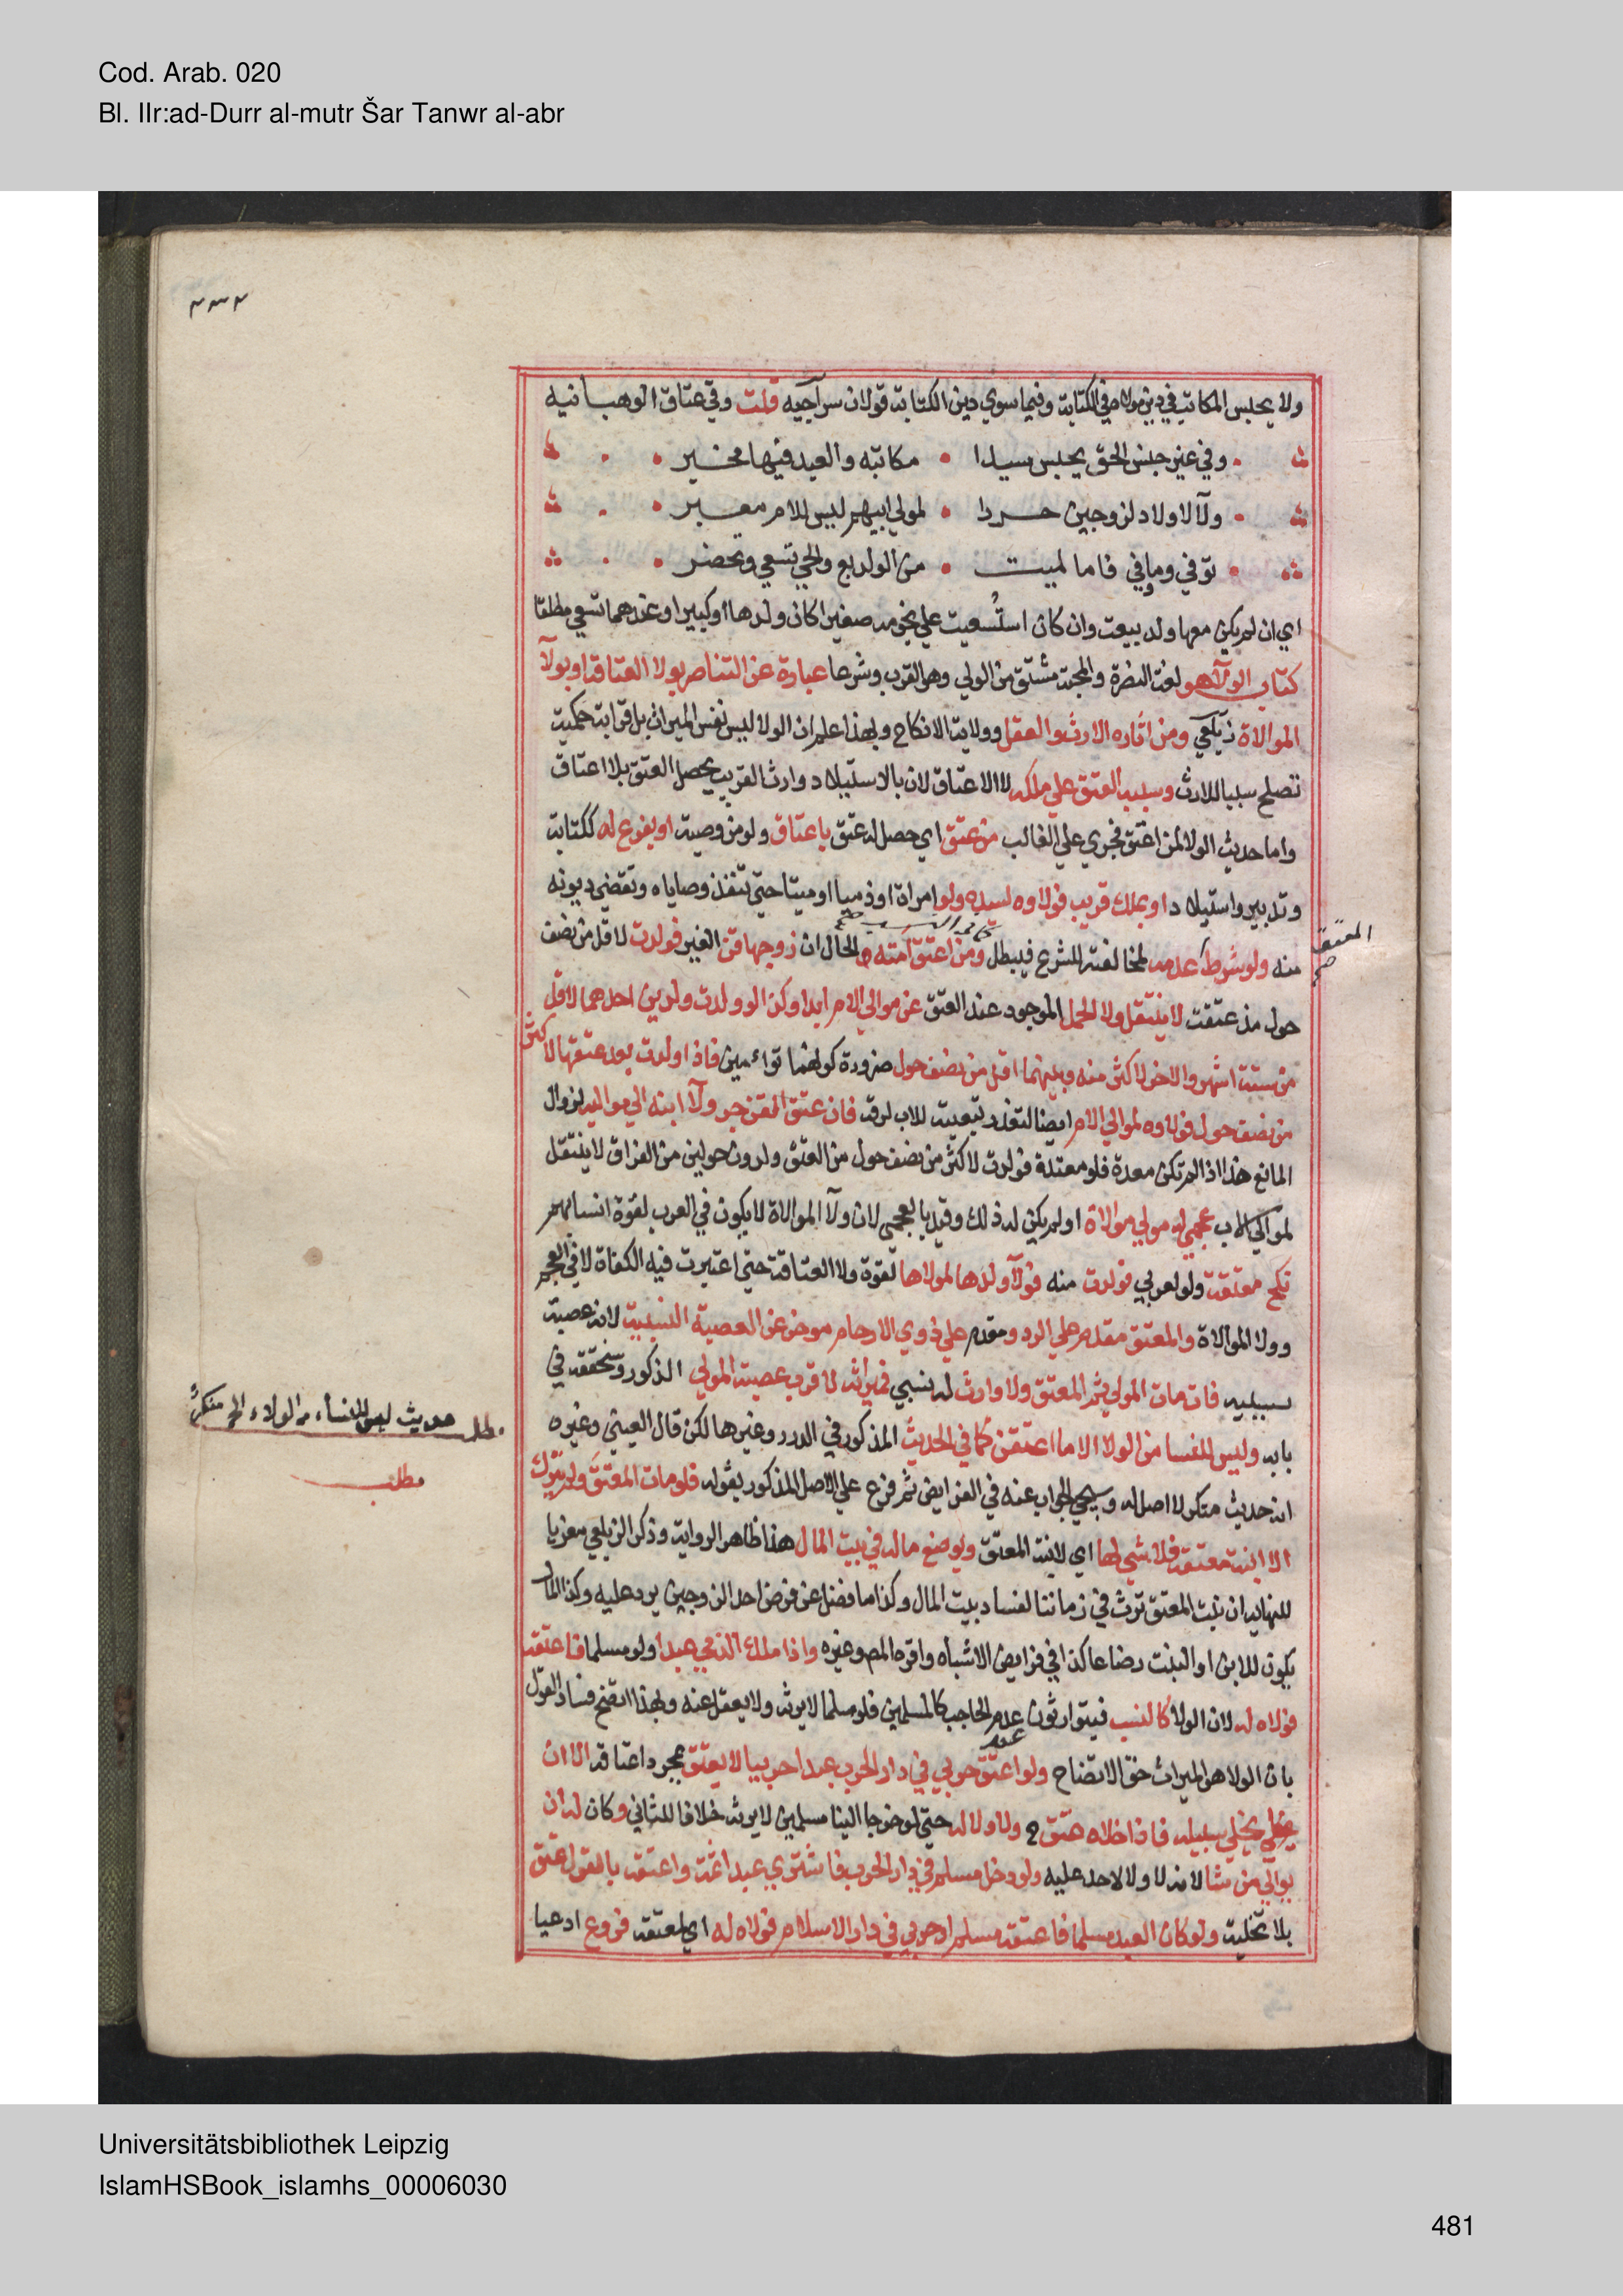 Cod. Arab. 020
Bl. IIr:ad-Durr al-mutr Šar Tanwr al-abr
٢٣٢
ولا يحبس المكاتب في دين مولاه في الكتابة وفيما سوي دين الكتابة قولان سراجيه قلت وفي عتاق الوهبانيه
وفي غير جنس الحق يحبس سيدا مكاتبه والعبد فيها مخير
ولآ لاولاد لزوجين حردا لمولي ابيهم ليس للام معبر
توفي وما وفي فاما لميت من الولد بع والحي تسعي وتحضر
اي ان لم يكن معها ولد بيعت وان كان استُسعيت علي نجومه صغيرا كان ولدها او كبيرا وعندهما تسعي مطلقا
كتاب الولآ هو لغة النصرة والمحبة مشتق من الولي وهو القرب وشرعا عبارة عن التناصر بولا العتاقة او بولآ
الموالاة زيلعي ومن اثاره الارث والعقل وولاية الانكاح وبهذا علم ان الولا ليس نفس الميراث بل قرابة حكمية
تصلح سببا للارث وسببه العتق علي ملكه لا الاعتاق لان بالاستيلاد وارث القريب يحصل العتق بلا اعتاق
واما حديث الولا لمن اعتق فجري علي الغالب من عتق اي حصل له عتق باعتاق ولو من وصية او بفرع له ككتابة
وتدبير واستيلاد او بملك قريب فولاوه لسيده ولو امراة او ذميا او ميتا حتي تنفذ وصاياه وتقضي ديونه
المعتق صح
منه ولو شرط عدمه لمخالفته للشرع فيبطل ومن اعتق امته والحال ان زوجها قن الغير فولدت لاقل من نصف
حول مذ عتقت لا ينتقل ولا الحمل الموجود عند العتق عن موالي الام ابدا وكذا لو ولدت ولدين احدهما لاقل
من ستة اشهر والاخر لاكثر منه وبينهما اقل من نصف حول ضرورة كونهما توءمين فاذا ولدت بعد عتقها لاكثر
من نصف حول فولاوه لموالي الام ايضا لتعذر تبعيته للاب لرقه فان عتق القن جر ولآ ابنه الي مواليه لزوال
المانع هذا اذا لم تكن معتدة فلو معتدة فولدت لاكثر من نصف حول من العتق ولدون حولين من الفراق لا ينتقل
لموالي الاب عجمي له مولي موالاة او لم يكن له ذلك وقيد بالعجمي لان ولآ الموالاة لا يكون في العرب لقوة انسابهم
نكح معتقة ولو لعربي فولدت منه فولآ ولدها لمولاها لقوة ولا العتاقة حتي اعتبرت فيه الكفاة لا في العجم
وولا الموالاة والمعتق مقدم علي الرد ومقدم علي ذوي الارحام موخر عن العصبة النسبية لانه عصبة
سببيه فان مات المولي ثم المعتق ولا وارث له نسبي فميراثه لاقرب عصبة المولي الذكور وسنحققه في
بابه وليس للنسا من الولا الا ما اعتقن كما في الحديث المذكور في الدرر وغيرها لكن قال العيني وغيره
مطلب حديث ليس للنساء من الولاء الخ منكرٌ
مطلب
انه حديث منكر لا اصل له وسيجي الجواب عنه في الفرايض ثم فرع علي الاصل المذكور بقوله فلو مات المعتق ولم يترك
الا ابنة معتقه فلا شي لها اي لابنة المعتق ويوضع ماله في بيت المال هذا ظاهر الرواية وذكر الزيلعي معزيا
للنهاية ان بنت المعتق ترث في زماننا لفساد بيت المال وكذا ما فضل عن فرض احد الزوجين يرد عليه وكذا المال
يكون للابن او البنت رضاعا كذا في فرايض الاشباه واقره المص وغيره واذا ملك الذمي عبدا ولو مسلما فاعتقه
فولاه له لان الولا كالنسب فيتوارثون عند عدم الحاجب كالمسلمين فلو مسلما لا يرثه ولا يعقل عنه وبهذا اتضح فساد القول
بان الولا هو الميراث حق الاتضاح ولو اعتق حربي في دار الحرب عبدا حربيا لا يعتق بمجرد اعتاقه الا ان
يخلي سبيله فاذا خلاه عتق ولا ولا له حتي لو خرجا الينا مسلمين لا يرثه خلافا للثاني وكان له ان
يوالي من شا لانه لا ولا لاحد عليه ولو دخل مسلم في دار الحرب فاشتري عبدا ثمة واعتقه بالقول عتق
بلا تخلية ولو كان العبد مسلما فاعتقه مسلم او حربي في دار الاسلام فولاه له اي لمعتقه فروع ادعيا
Universitätsbibliothek Leipzig
IslamHSBook_islamhs_00006030
481